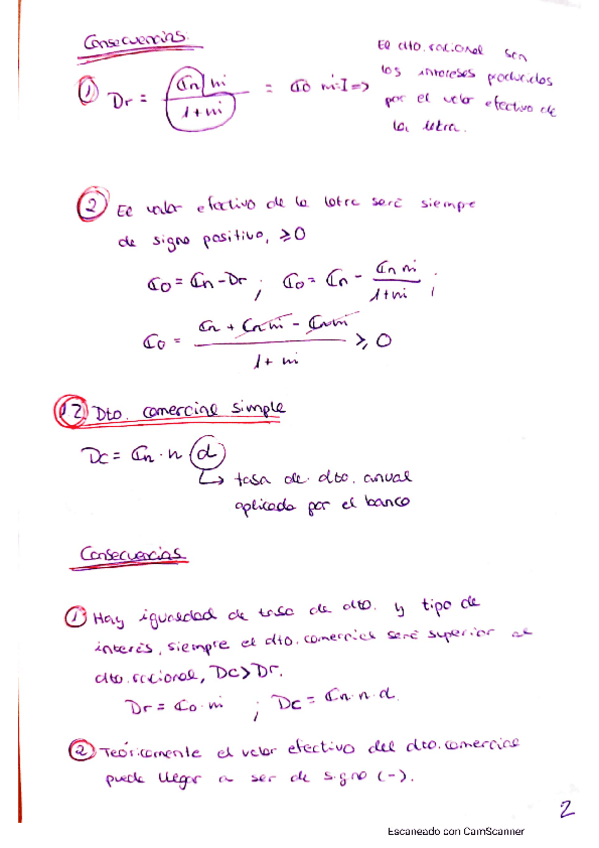 Consecuencias.
① Dr = Cn ni / 1+ni = Co ni = I ⇒
El dto. racional son
los intereses producidos
por el valor efectivo de
la letra.
② El valor efectivo de la letra será siempre
de signo positivo, ≥0
Co = Cn - Dr ; Co = Cn - Cn ni / 1+ni ;
Co = Cn + Cn ni - Cn ni / 1 + ni ≥ 0
2 Dto. comercial simple
Dc = Cn · n d
↳ tasa de dto. anual
aplicada por el banco
Consecuencias
① Hay igualdad de tasa de dto. y tipo de
interés, siempre el dto. comercial será superior al
dto. racional, Dc > Dr.
Dr = Co · ni ; Dc = Cn · n · d.
② Teóricamente el valor efectivo del dto. comercial
puede llegar a ser de signo (-).
2
Escaneado con CamScanner